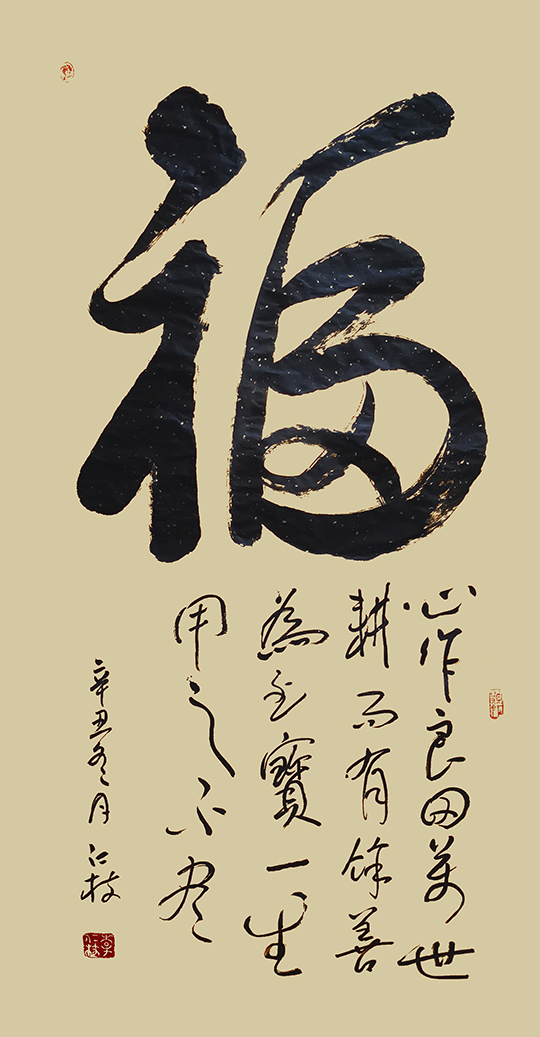 福
心作良田萬世
耕而有餘善
為至寶一生
用之不尽
辛丑冬月 仁枝
李仁枝